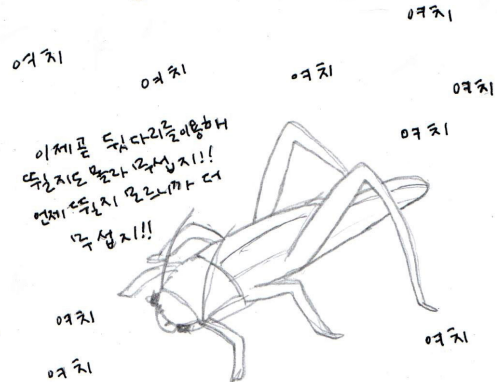 여치
여치
여치
여치
여치
여치
이제곧 뒷다리를이용해
뛸지도 몰라 무섭지!!
언제 뛸지 모르니까 더
무섭지!!
여치
여치
여치